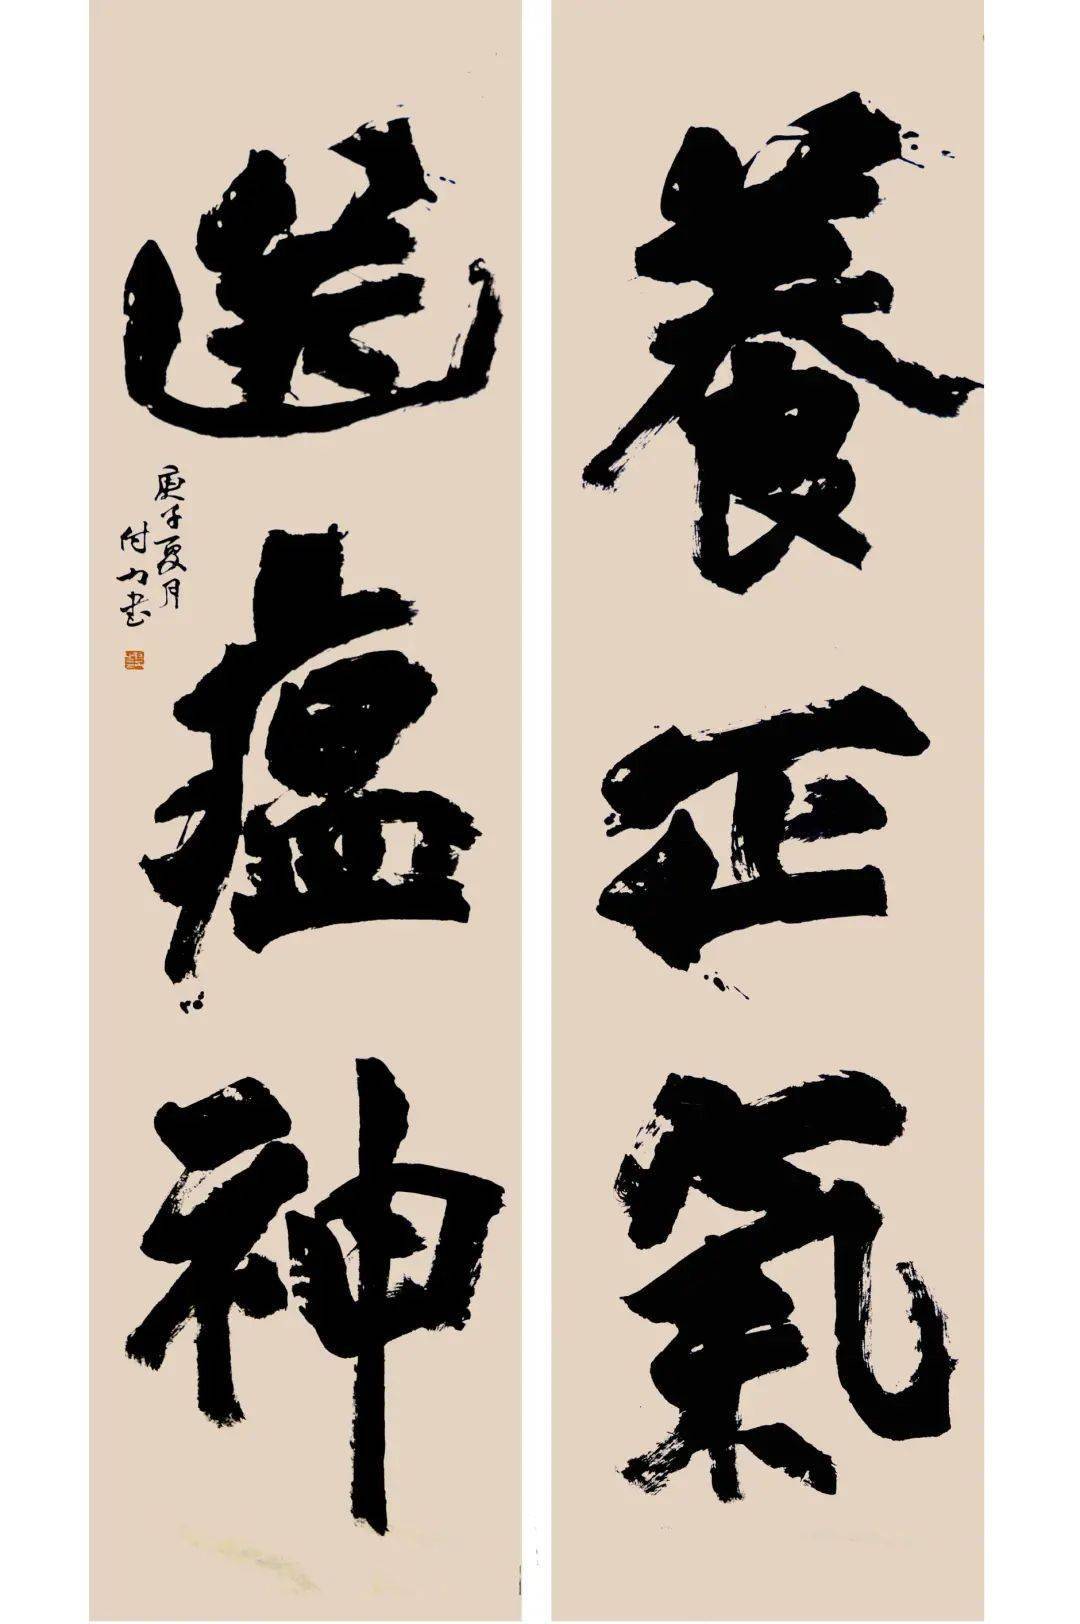 養正氣
送瘟神
庚子夏月
付力書